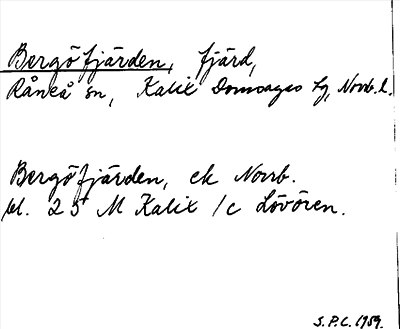 Bergöfjärden, fjärd,
Råneå sn, Kalix Domsagas tg, Norrb. l.
Bergöfjärden, ek Norrb.
bl. 25 M Kalix /c Lövören.
S.P.C. 1959.